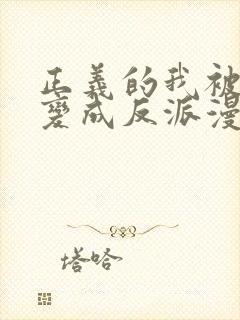 正義的我被
變成反派漫
塔哈